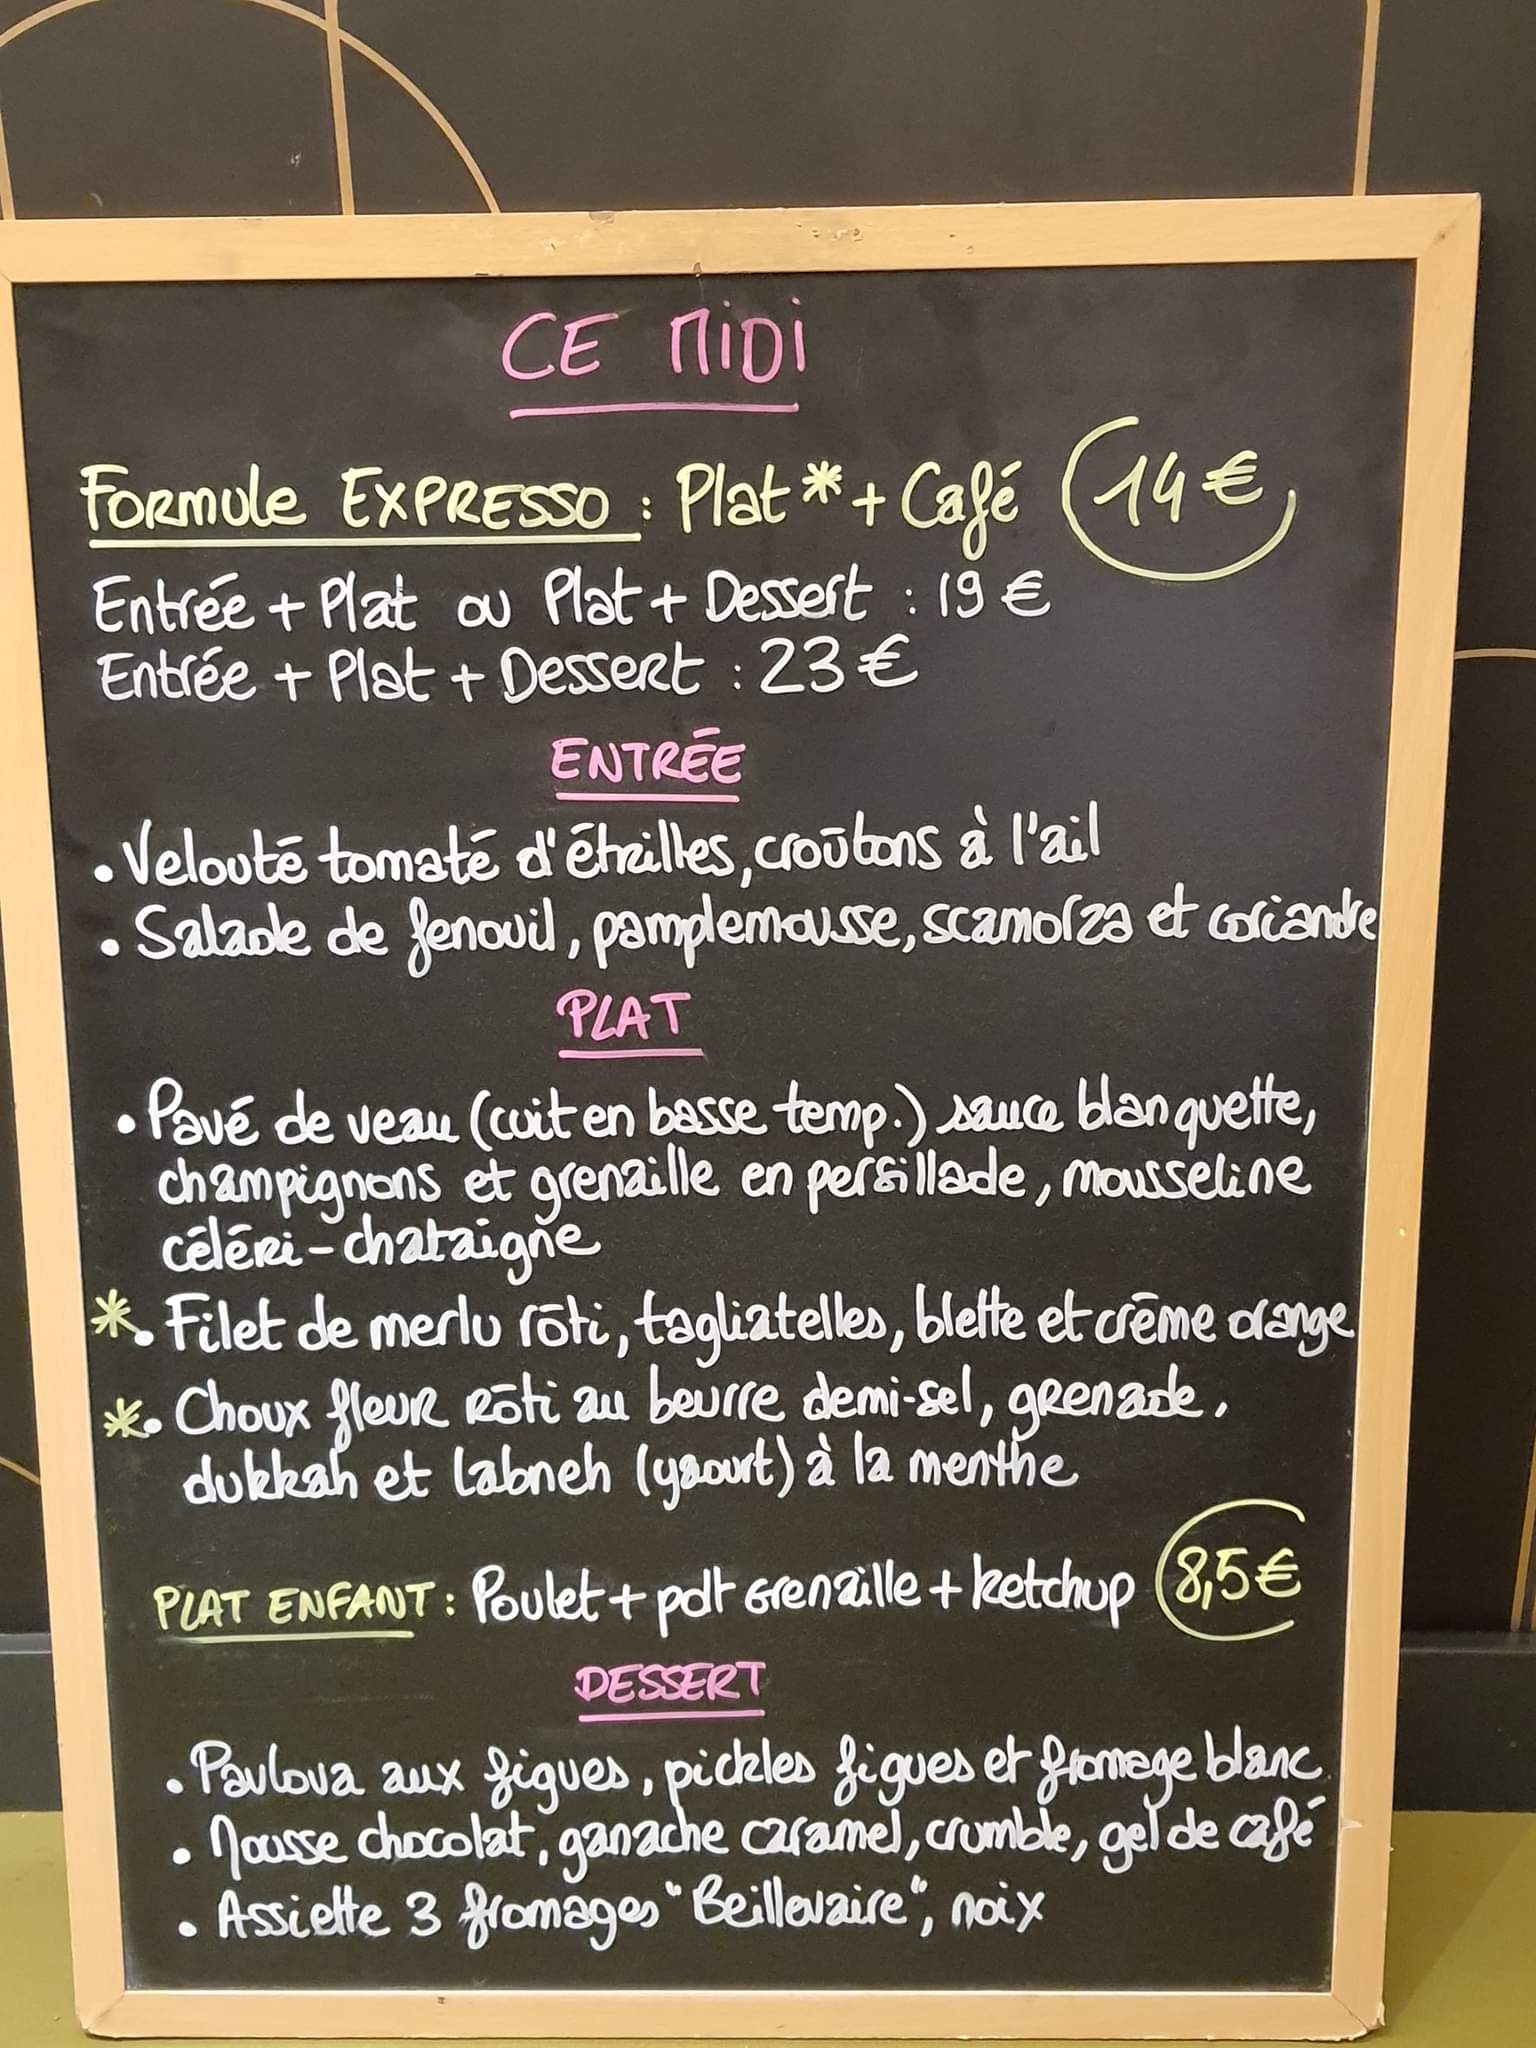 CE MIDI
Formule EXPRESSO : Plat* + Café 14 €
Entrée + Plat ou Plat + Dessert : 19 €
Entrée + Plat + Dessert : 23 €
ENTRÉE
• Velouté tomaté d'étrilles, croûtons à l'ail
• Salade de fenouil, pamplemousse, scamorza et coriandre
PLAT
• Pavé de veau (cuit en basse temp.) sauce blanquette,
champignons et grenaille en persillade, mousseline
céléri-chataigne
*• Filet de merlu rôti, tagliatelles, blette et crème orange
*• Choux fleur rôti au beurre demi-sel, grenade,
dukkah et labneh (yaourt) à la menthe
PLAT ENFANT : Poulet + pdt Grenaille + ketchup 8,5 €
DESSERT
• Pavlova aux figues, pickles figues et fromage blanc
• Mousse chocolat, ganache caramel, crumble, gel de café
• Assiette 3 fromages "Beillevaire", noix